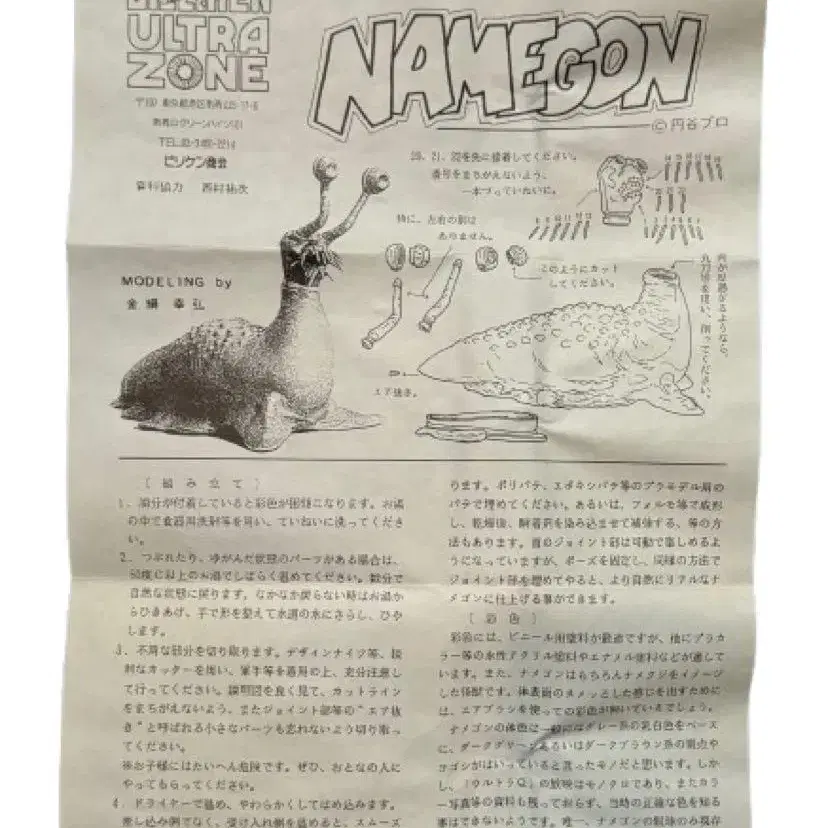 ULTRA
ZONE
NAMEGON
©円谷プロ
ビリケン商会
資料協力 西村祐次
20、21、22を先に接着してください。
番号をまちがえないよう、
一本づついねいに。
特に、左右の別は
ありません。
このようにカット
してください。
MODELING by
エア抜き。
[組み立て]
1、油分が付着していると彩色が困難になります。お湯
の中で食器用洗剤等を用い、ていねいに洗ってくださ
い。
2、つぶれたり、ゆがんだ状態のパーツがある場合は、
以上のお湯でしばらく温めてください。数分で
自然な状態に戻ります。なかなか戻らない時はお湯か
らひきあげ、手で形を整えて水道の水にさらし、ひや
します。
3、不用な部分を切り取ります。デザインナイフ等、鋭
利なカッターを用い、軍手等を着用の上、充分注意し
て行ってください。説明図を良く見て、カットライン
をまちがえないよう、またジョイント部等の"エア抜
き"と呼ばれる小さなパーツも忘れないよう切り取っ
てください。
※お子様にはたいへん危険です。ぜひ、おとなの人に
やってもらってください。
4、ドライヤーで温め、やわらかくしてはめ込みます。
差し込み側でなく、受け入れ側を温めると、スムーズ
ります。ポリパテ、エポキシパテ等のプラモデル用の
パテで埋めてください。あるいは、フォルモ等で成形
し、乾燥後、瞬着剤を染み込ませて補強する、等の方
法もあります。首のジョイント部は可動で楽しめるよ
うになっていますが、ポーズを固定し、同様の方法で
ジョイント部を埋めてやると、より自然にリアルなナ
メゴンに仕上げる事ができます。
[彩色]
彩色には、ビニール用塗料が最適ですが、他にプラカ
ラー等の水性アクリル塗料やエナメル塗料などが適して
います。また、ナメゴンはもちろんナメクジをイメージ
した怪獣です。体表面のヌメッとした感じを出すために
は、エアブラシを使っての彩色が向いているでしょう。
ナメゴンの体色は一般にはグレー系の乳白色をベース
に、ダークグリーンあるいはダークブラウン系の斑点や
ヨゴシがはいっていると言ったモノだと思います。しか
し、「ウルトラQ」の放映はモノクロであり、またカラ
ー写真等の資料も残っておらず、当時の正確な色を知る
事はできないようです。唯一、ナメゴンの眼球のみ現存